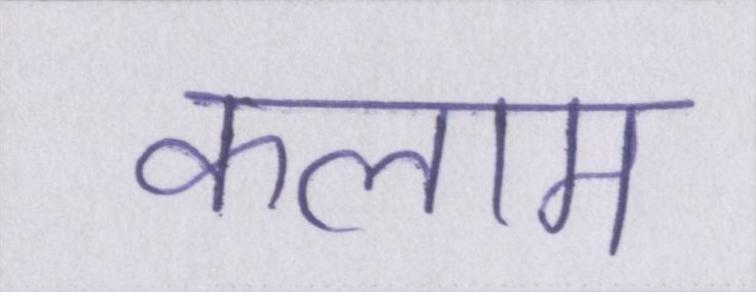 कलाम